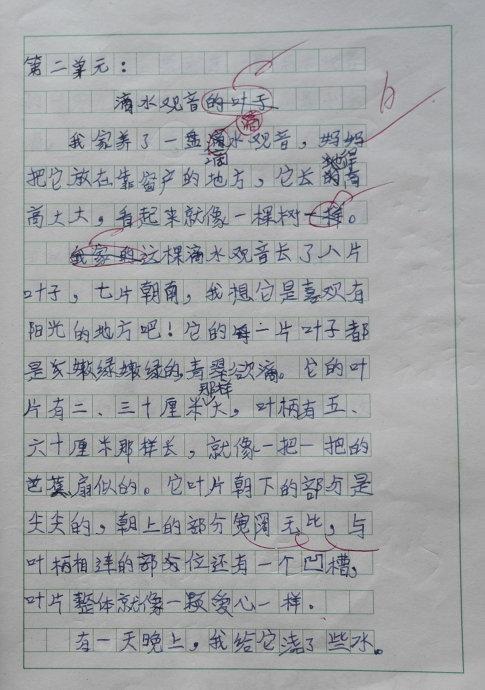 第二单元：
滴水观音的叶子
我家养了一盘滴水观音，妈妈
把它放在靠窗户的地方，它长地得高
高大大，看起来就像一棵树一样。
我家的这棵滴水观音长了八片
叶子，七片朝南，我想它是喜欢有
阳光的地方吧！它的每一片叶子都
是嫩绿嫩绿的，青翠欲滴。它的叶
片有二、三十厘米那样大，叶柄有五、
六十厘米那样长，就像一把一把的
芭蕉扇似的。它叶片朝下的部分是
尖尖的，朝上的部分宽阔无比，与
叶柄相连的部分位还有一个凹槽，
叶片整体就像一颗爱心一样。
有一天晚上，我给它浇了些水。